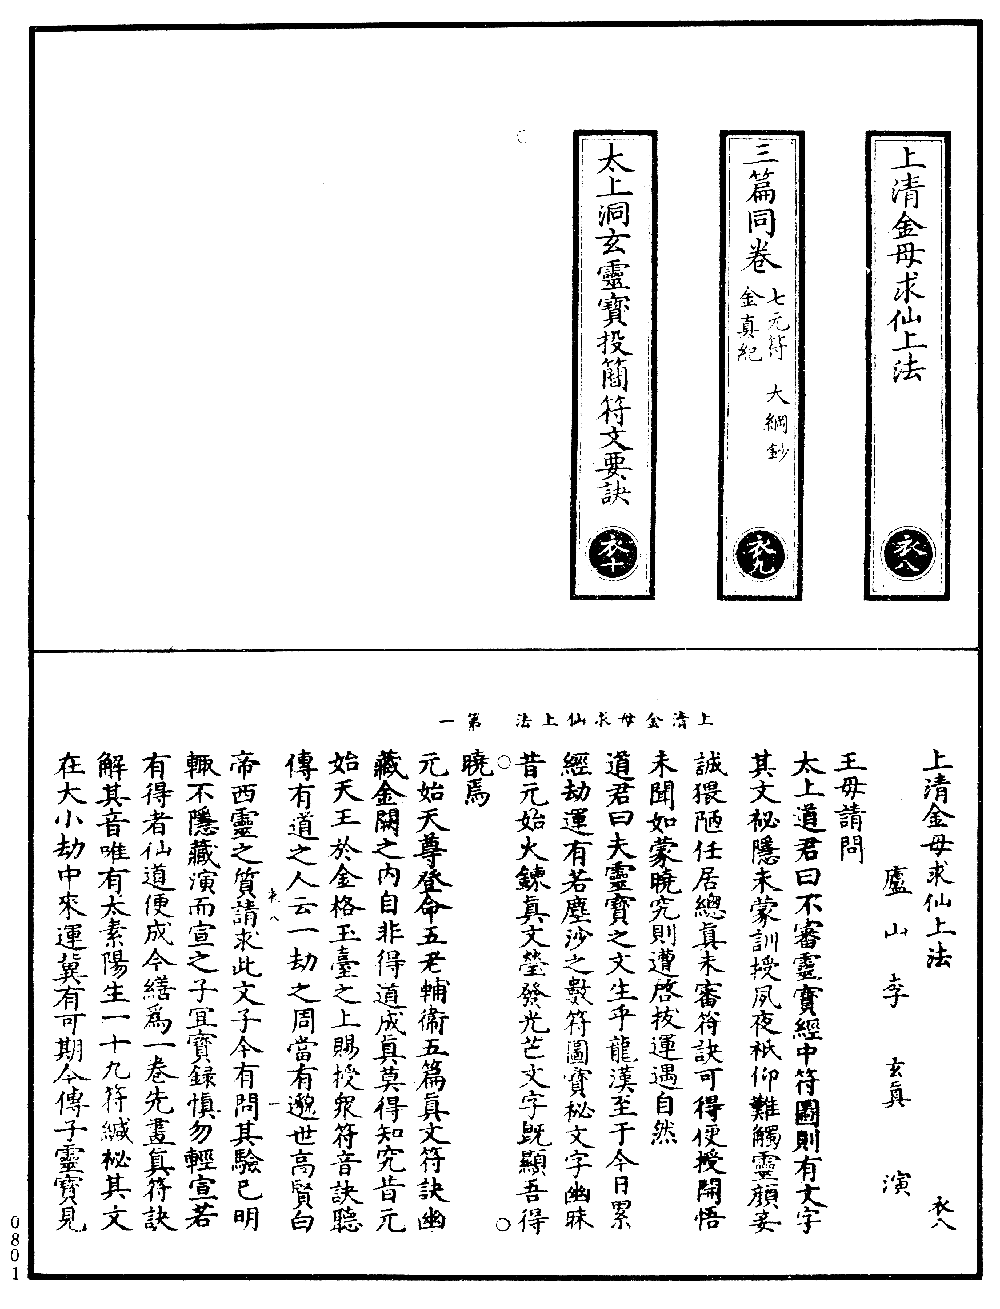 上清金母求仙上法
衣八
三篇同卷
七元符 大綱鈔
金真紀
衣九
太上洞玄靈寶投簡符文要訣
衣十
上清金母求仙上法 第一
上清金母求仙上法 衣八
盧山李玄真演
王母請問
太上道君曰不審靈寶經中符圖則有文字
其文祕隱未蒙訓授夙夜祇仰難觸靈顏妾
誠猥陋任居總真未審符訣可得便授開悟
未聞如蒙曉究則遭啓拔運遇自然
道君曰夫靈寶之文生乎龍漢至于今日累
經劫運有若塵沙之數符圖寶秘文字幽昧
昔元始火鍊真文瑩發光芒文字旣顯吾得
曉焉
元始天尊登命五老輔衛五篇真文符訣幽
藏金闕之內自非得道成真莫得知究昔元
始天王於金格玉臺之上賜授衆符音訣聽
傳有道之人云一劫之周當有邈世高賢白
衣八 一
帝西靈之質請求此文子今有問其驗已明
輙不隱藏演而宣之子宜寶録慎勿輕宣若
有得者仙道便成今繕爲一卷先畫真符訣
解其音唯有太素陽生一十九符緘祕其文
在大小劫中來運冀有可期今傳子靈寶見
0801